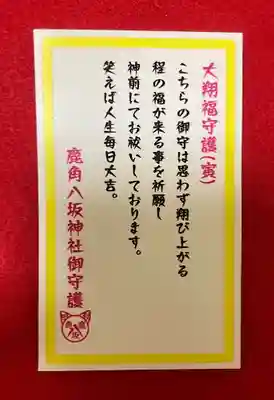 大翔福守護(寅)
こちらの御守は思わず翔び上がる
程の福が来る事を祈願し
神前にてお祓いしております。
笑えば人生毎日大吉。
鹿角八坂神社御守護